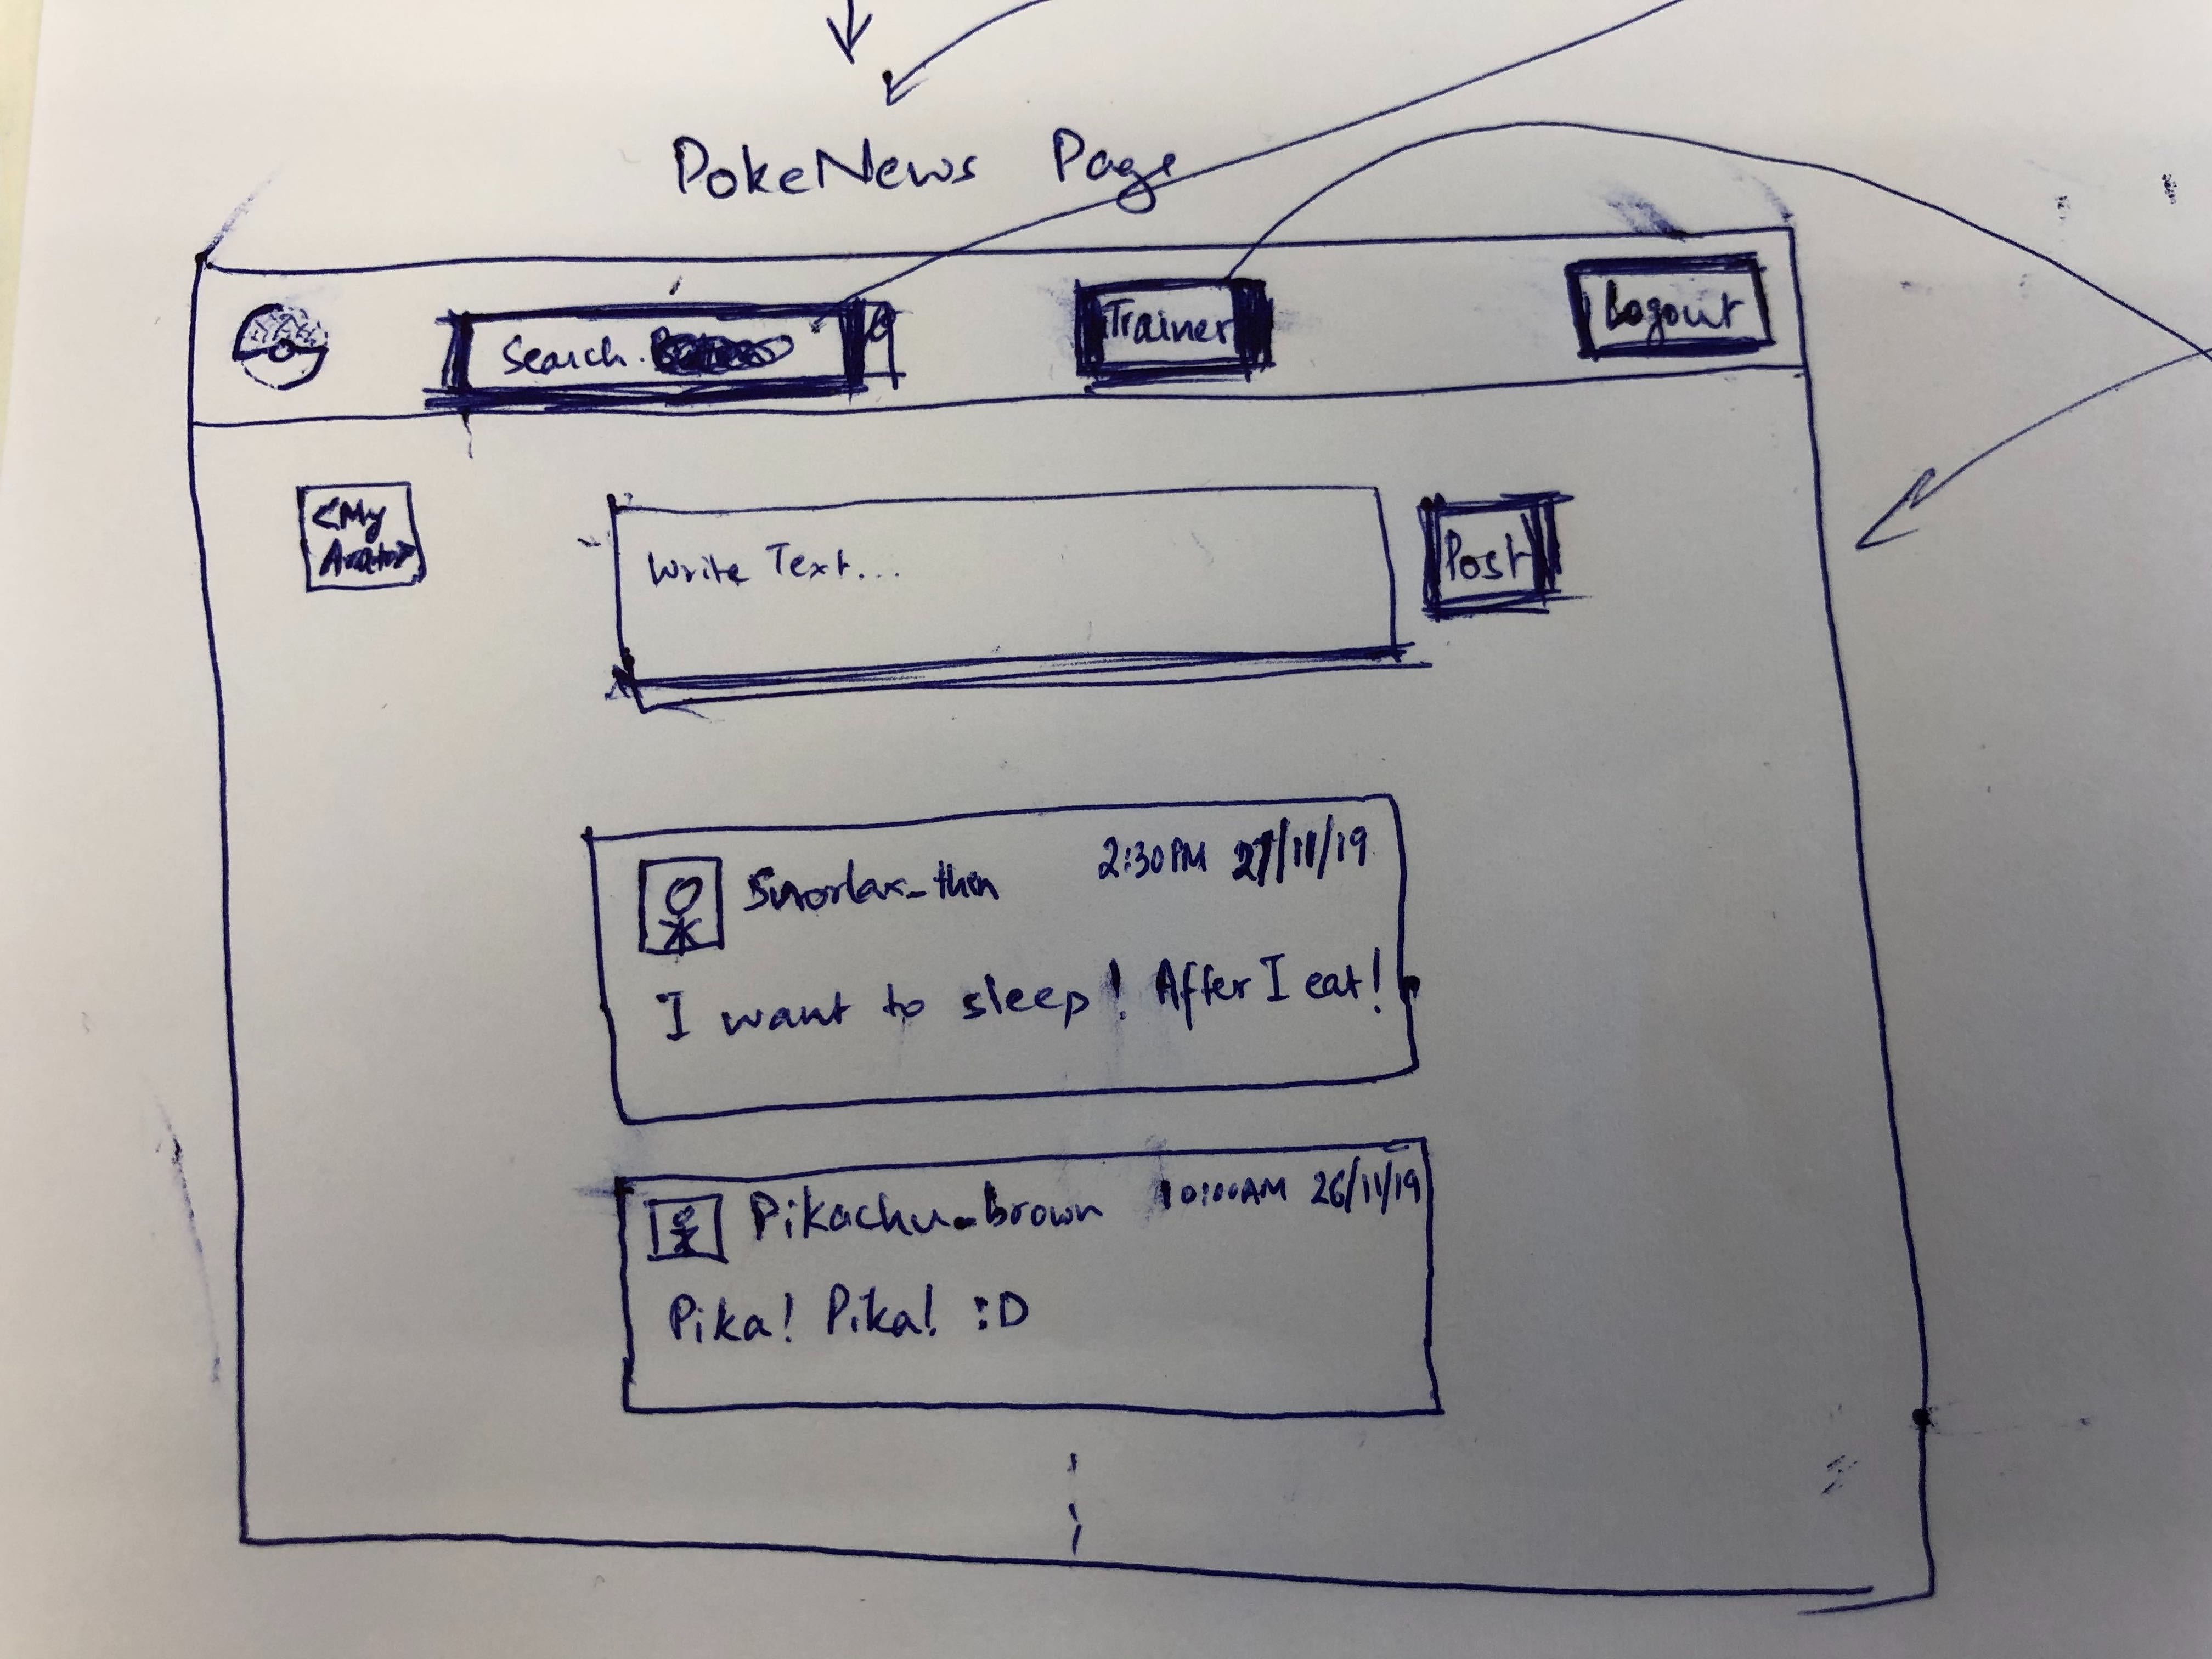 PokeNews Page
Search.
Trainer
Logout
<My
Avatar>
Write Text...
Post
Snorlax_thin
2:30PM 27/11/19
I want to sleep! After I eat!
Pikachu_brown
10:00AM 26/11/19
Pika! Pika! :D